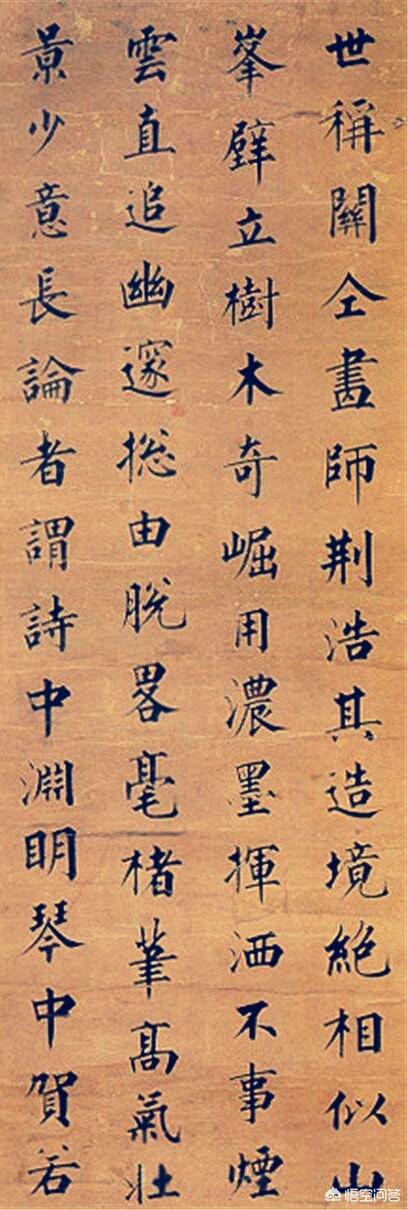 世稱關仝畫師荆浩其造境絶相似山
峯壁立樹木奇崛用濃墨揮洒不事煙
雲直追幽邃揔由脫畧毫楮筆高氣壯
景少意長論者謂詩中淵明琴中賀若
悟空问答